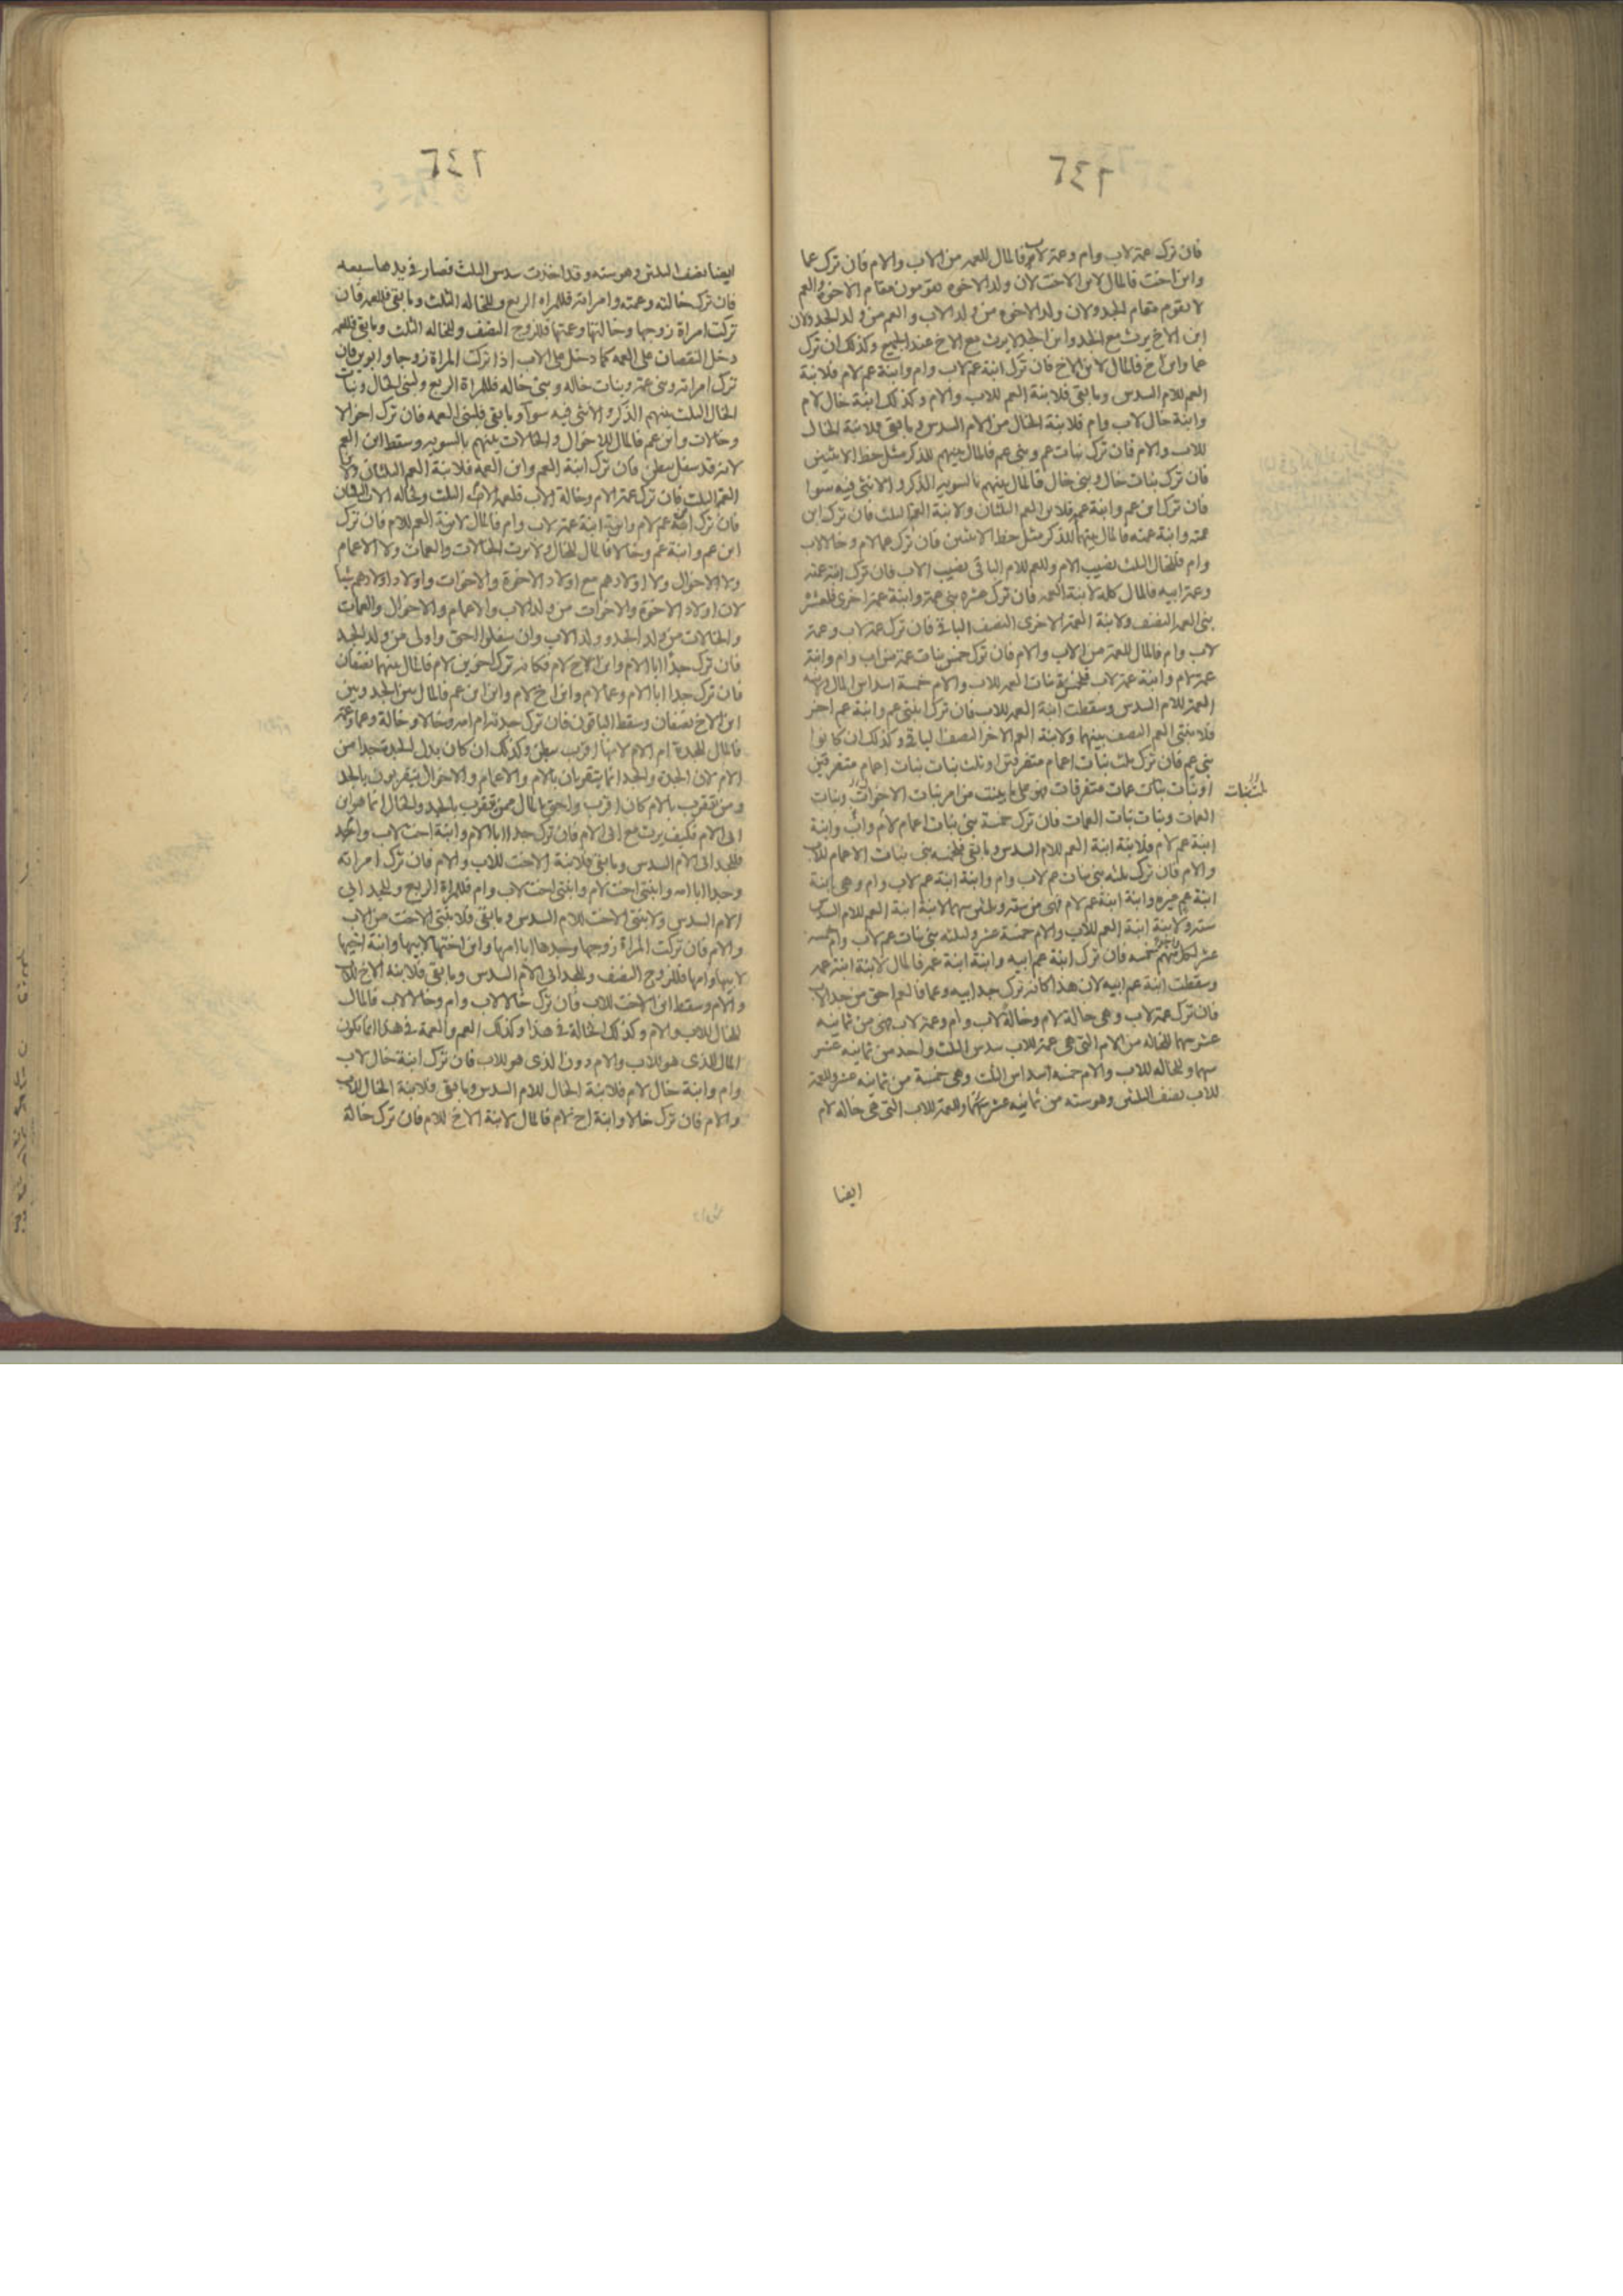 ٦٤٢
فان ترك عمة لاب وام وعمة لاب فالمال للعمة من الاب والام فان ترك عما
وابن اخت فالمال لابن الاخت لان ولد الاخوه يقومون مقام الاخوة والعم
لا يقوم مقام الجد ولان ولد الاخوه من ولد الاب والعم من ولد الجد ولان
ابن الاخ يرث مع الجد وابن الجد لا يرث مع الاخ عند الجميع وكذلك ان ترك
عما وابن اخ فالمال لابن الاخ فان ترك ابنة عم لاب وام وابنة عم لام فلابنة
العم للام السدس وما بقى فلابنة العم للاب والام وكذلك ابنة خال لام
وابنة خال لاب وام فلابنة الخال من الام السدس وما بقى فلابنة الخال
للاب والام فان ترك بنات عم وبنى عم فالمال بينهم للذكر مثل حظ الانثيين
فان ترك بنات خال وبنى خال فالمال بينهم بالسويه الذكر والانثى فيه سوا
فان ترك ابن عم وابنة عمة فلابن العم الثلثان ولابنة العمة الثلث فان ترك ابن
عمته وابنة عمته فالمال بينهما للذكر مثل حظ الانثيين فان ترك عما لام وخالا لاب
وام فللخال الثلث نصيب الام وللعم للام الباقى نصيب الاب فان ترك ابنة عمته
وعمة ابيه فالمال كله لابنة العمه فان ترك عشره بنى عمة وابنة عمة اخرى فلعشرة
بنى العمه النصف ولابنة العمة الاخرى النصف الباقى فان ترك عمة لاب وعمة
لاب وام فالمال للعمة من الاب والام فان ترك خمس بنات عمة من اب وام وابنة
عمة لام وابنة عمة لاب فلخمس بنات العمه للاب والام خمسة اسداس المال ولابنة
العمة للام السدس وسقطت ابنة العمه للاب فان ترك ابنتى عم وابنة عم اخر
فلابنتى العم النصف بينهما ولابنة العم الاخر النصف الباقى وكذلك ان كانوا
بنى عم فان ترك ثلث بنات اعمام متفرقين او ثلث بنات بنات اعمام متفرقين
او بنات عمات متفرقات فهو على ما بينت من امر بنات الاخوات وبنات
العمات وبنات بنات العمات فان ترك خمسة بنى بنات اعمام لام واب وابنة
ابنة عم لام فلابنة ابنة العم للام السدس وما بقى فلخمسه بنى بنات الاعمام للاب
والام فان ترك ثلثه بنى بنات عم لاب وام وابنة ابنة عم لاب وام وهى ابنة
ابنة عم غيره وابنة ابنة عم لام فهى من ستة وثلثين سهما لابنة ابنة العم للام السدس
سته ولابنة ابنة العم للاب والام خمسة عشر ولثلثه بنى بنات عم لاب وام خمسه
عشر لكل سهم خمسه فان ترك ابنة عم ابيه وابنة ابنة عمه فالمال لابنة ابنة عمه
وسقطت ابنة عم ابيه لان هذا كانه ترك جد ابيه وعما فالعم احق من جد الاب
فان ترك عمة لاب وهى خالة لام وخالة لاب وام وعمة لاب فهى من ثمانيه
عشر سهما للخاله من الام التى هى عمة للاب سدس الثلث واحد من ثمانيه عشر
سهما وللخاله للاب والام خمسه اسداس الثلث وهى خمسة من ثمانيه عشر وللعمة
للاب نصف الثلثين وهو سته من ثمانيه عشر سهما وللعمة للاب التى هى خاله لام
ايضا
٦٤٢
ايضا نصف الثلثين وهو سته وقد اخذت سدس الثلث فصار فى يدها سبعه
فان ترك خالته وعمته وامراته فللمراه الربع وللخاله الثلث وما بقى فللعمه فان
تركت امراة زوجها وخالتها وعمتها فللزوج النصف وللخاله الثلث وما بقى فللعمه
دخل النقصان على العمه كما دخل على الاب اذا تركت المراة زوجا وابوين فان
ترك امراته وبنى عمة وبنات خاله وبنى خاله فللمراة الربع ولبنى الخال وبنات
الخال الثلث بينهم الذكر والانثى فيه سوآ وما بقى فلبنى العمه فان ترك اخوالا
وخالات وابن عم فالمال للاخوال والخالات بينهم بالسويه وسقط ابن العم
لانه قد سفل ببطن فان ترك ابنة العم وابن العمة فلابنة العم الثلثان ولابن
العمة الثلث فان ترك عمة الام وخالة الاب فلعمه الام الثلث ولخاله الاب الثلثان
فان ترك ابنة عم لام وابنة ابنة عمة لاب وام فالمال لابنة العم للام فان ترك
ابن عم وابنة عم وخالا فالمال للخال ولا يرث الخالات والعمات ولا الاعمام
ولا الاخوال ولا اولادهم مع اولاد الاخوة والاخوات واولاد اولادهم شيا
لان اولاد الاخوة والاخوات من ولد الاب والاعمام والاخوال والعمات
والخالات من ولد الجد وولد الاب وان سفلوا احق واولى من ولد الجد
فان ترك جدا ابا الام وابن الاخ لام فكانه ترك اخوين لام فالمال بينهما نصفان
فان ترك جدا ابا الام وعما لام وابن اخ لام وابن ابن عم فالمال بين الجد وبين
ابن الاخ نصفان وسقط الباقون فان ترك جدته ام امه وخالا وخالة وعما وعمة
فالمال للجدة ام الام لانها اقرب ببطن وكذلك ان كان بدل الجدة جدا من
الام لان الجدة والجد انما يتقربان بالام والاعمام والاخوال يتقربون بالجد
ومن تقرب بالام كان اقرب واحق بالمال ممن تقرب بالجد والخال انما هو ابن
ابى الام فكيف يرث مع ابى الام فان ترك جدا ابا الام وابنة اخت لاب وام
فللجد ابى الام السدس وما بقى فلابنة الاخت للاب والام فان ترك امراته
وجدا ابا امه وابنتى اخت لام وابنتى اخت لاب وام فللمراة الربع وللجد ابى
الام السدس ولابنتى الاخت للام السدس وما بقى فلابنتى الاخت من الاب
والام فان تركت المراة زوجها وجدها ابا امها وابن اختها لابيها وابنة اخيها
لابيها وامها فللزوج النصف وللجد ابى الام السدس وما بقى فلابنه الاخ للاب
والام وسقط ابن الاخت للاب فان ترك خالا لاب وام وخالا لاب فالمال
للخال للاب والام وكذلك الخالة فى هذا وكذلك العم والعمة فى هذا انما يكون
المال للذى هو للاب والام دون الذى هو للاب فان ترك ابنة خال لاب
وام وابنة خال لام فلابنة الخال للام السدس وما بقى فلابنة الخال للاب
والام فان ترك خالا وابنة اخ لام فالمال لابنة الاخ للام فان ترك خالة